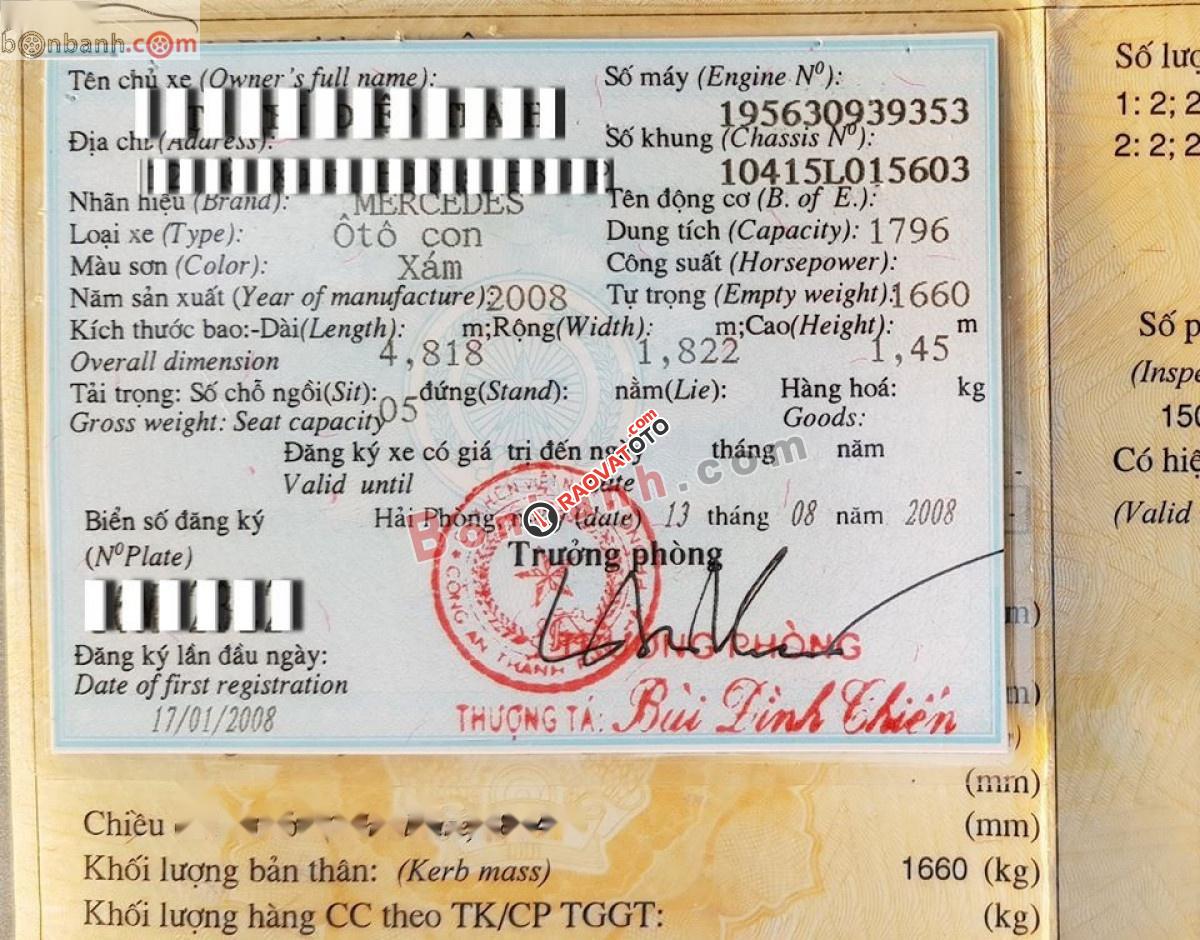 bonbanh.com
Tên chủ xe (Owner's full name):
Số máy (Engine Nº):
195630939353
Địa chỉ (Address):
Số khung (Chassis Nº):
10415L015603
Nhãn hiệu (Brand): MERCEDES
Tên động cơ (B. of E.):
Loại xe (Type): Ôtô con
Dung tích (Capacity): 1796
Màu sơn (Color): Xám
Công suất (Horsepower):
Năm sản xuất (Year of manufacture): 2008
Tự trọng (Empty weight): 1660
Kích thước bao:-Dài(Length): m;Rộng(Width): m;Cao(Height): m
Overall dimension 4,818 1,822 1,45
Tải trọng: Số chỗ ngồi(Sit): đứng(Stand): nằm(Lie): Hàng hoá: kg
Gross weight: Seat capacity 05 Goods:
Đăng ký xe có giá trị đến ngày tháng năm
Valid until date
RAOVATOTO.com
Bonbanh.com
Biển số đăng ký
Hải Phòng, (date) 13 tháng 08 năm 2008
(NºPlate)
Trưởng phòng
CÔNG AN THÀNH
TRƯỞNG PHÒNG
Đăng ký lần đầu ngày:
Date of first registration
17/01/2008
THƯỢNG TÁ: Bùi Đình Chiến
(mm)
Chiều (mm)
Khối lượng bản thân: (Kerb mass) 1660 (kg)
Khối lượng hàng CC theo TK/CP TGGT: (kg)
Số lượ
1: 2; 2
2: 2; 2
Số p
(Inspe
150
Có hiệ
(Valid